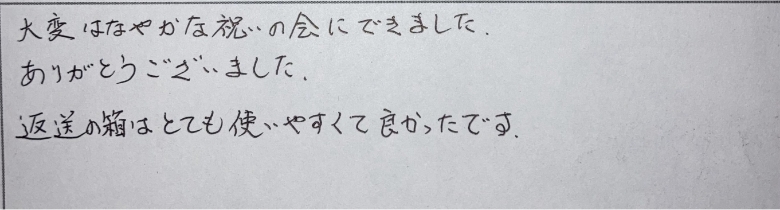 大変はなやかな祝いの会にできました.
ありがとうございました.
返送の箱はとても使いやすくて良かったです.